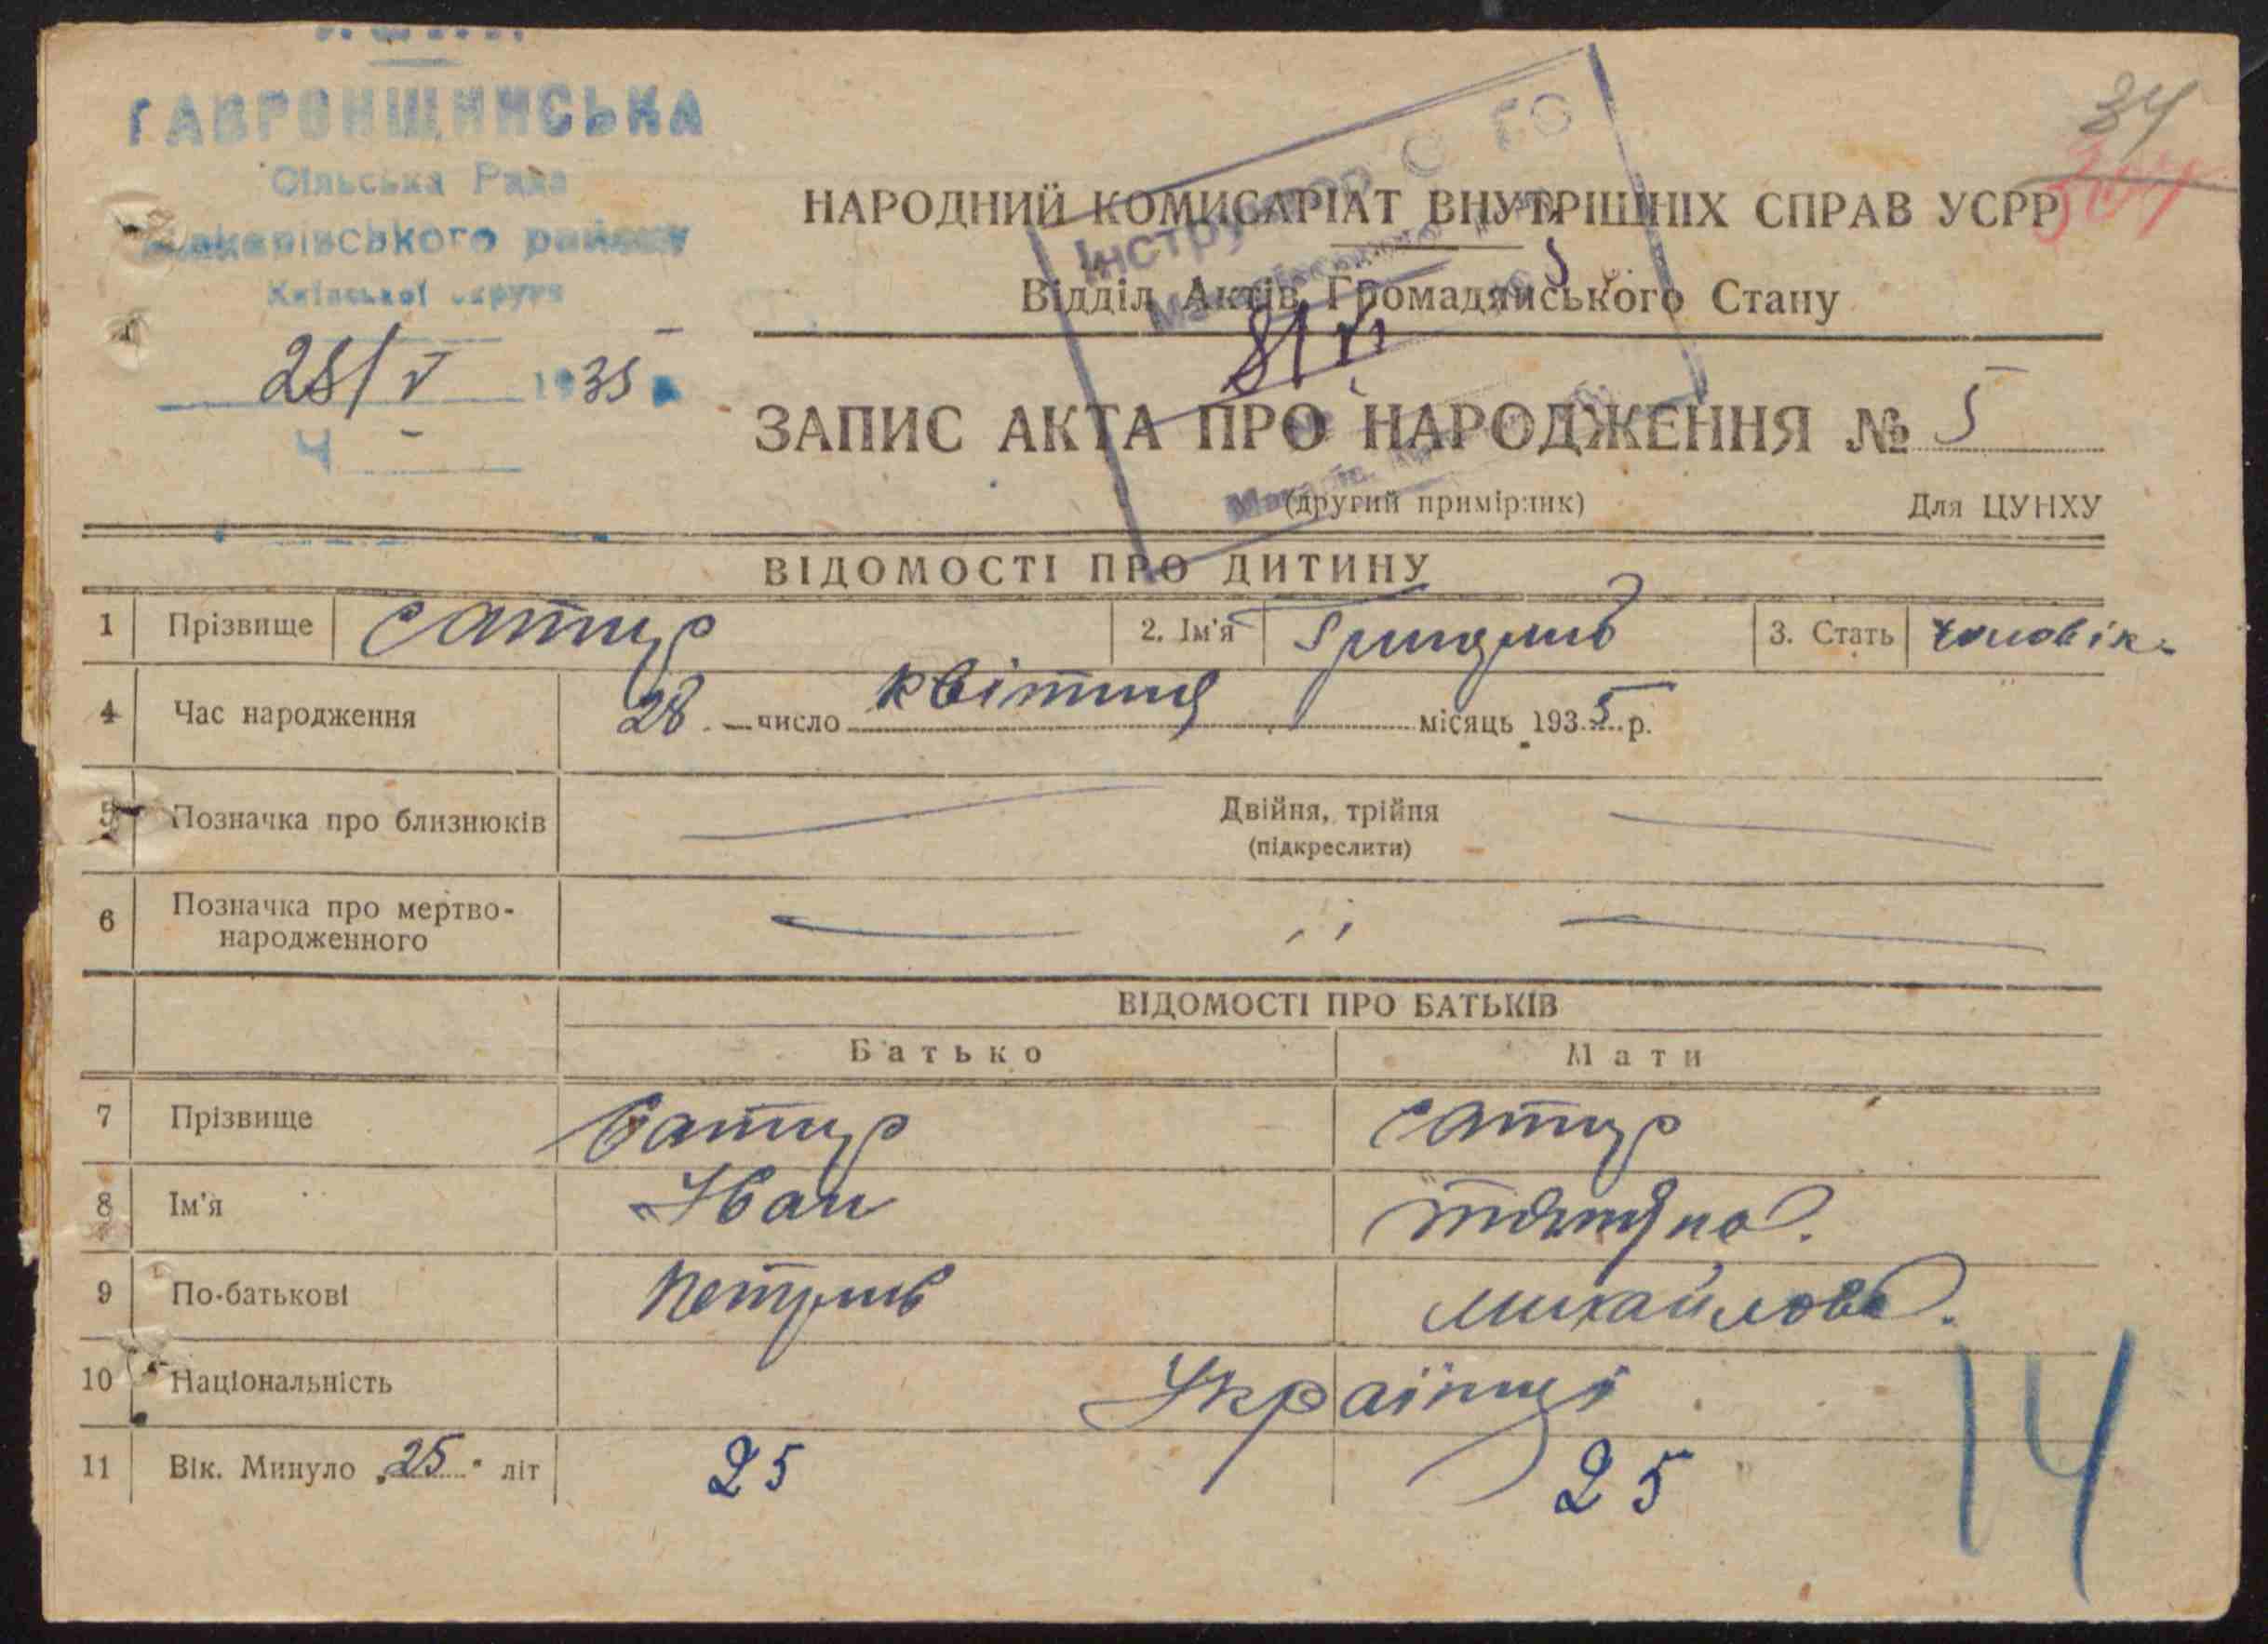 У.С.Р.Р.
ГАВРОНЩИНСЬКА
Сільська Рада
Макарівського району
Київської округи
28/V 1935 р.
Ч -
34
Інструктор
НАРОДНИЙ КОМИСАРІАТ ВНУТРІШНІХ СПРАВ УСРР
Відділ Актів Громадянського Стану
ЗАПИС АКТА ПРО НАРОДЖЕННЯ № 5
(другий примірник) Для ЦУНХУ
ВІДОМОСТІ ПРО ДИТИНУ
1 Прізвище Сатир 2. Ім'я 3. Стать чоловік.
4 Час народження 28 число квітня місяць 1935 р.
5 Позначка про близнюків Двійня, трійня
(підкреслити)
6 Позначка про мертво-
народженного
ВІДОМОСТІ ПРО БАТЬКІВ
Батько Мати
7 Прізвище Сатир Сатир
8 Ім'я Іван Тятяна.
9 По-батькові Петрив Михайлова.
10 Національність Українці
11 Вік. Минуло „25" літ 25 25
14